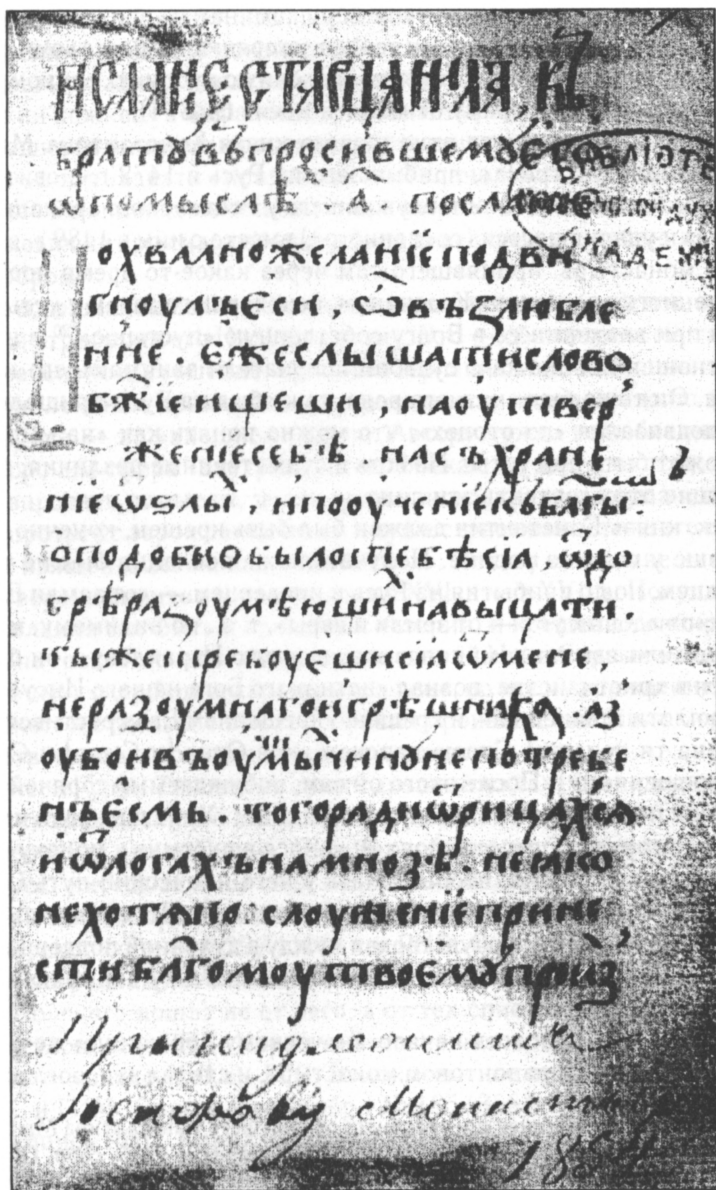 ПОСЛАНЇЕ СТАРЦА НИЛА, КЪ
братꙋ въпросившемꙋ е҆го
ѡ помыслѣ а послание
БИБЛІОТЕ
ДУХ
АКАДЕМ
Похвално желанїе подви
гноулъ е҆си ѡ възлюбле
нне. є҆же слышати слово
бж҃їе ищеши, на оутвер
женїе себѣ и на съхране
нїе ѿ злы и пооученїе къ бл҃гы
подобно было тебѣ сїа ѿ до
брѣ разоумѣющи навыцати.
ты же требоуєши сїа ѿ мене
неразоумнаго и грѣшника. аз
оубо и въ чинꙋ непотребе
нъ є҆смь. того ради и ѿрицахся
и ѿлогахъ на мнозѣ. не яко
не хотя слоуженїе прине
сти бл҃гомоу твоємꙋ произ
Монаст
1854